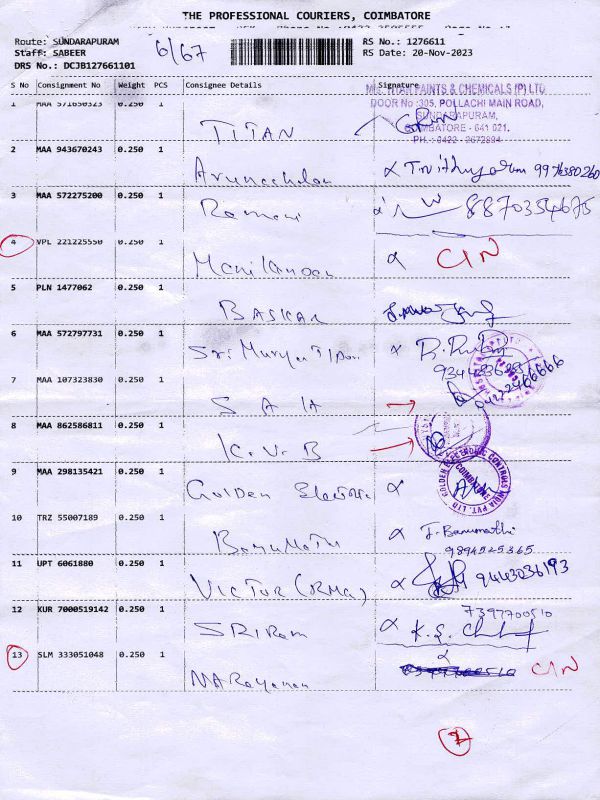 THE PROFESSIONAL COURIERS, COIMBATORE
Route: SUNDARAPURAM
Staff: SABEER
DRS No.: DCJB127661101
6/67
RS No.: 1276611
RS Date: 20-Nov-2023
S No Consignment No Weight PCS Consignee Details Signature
PAINTS & CHEMICALS (P) LTD
DOOR No :305, POLLACHI MAIN ROAD,
SUNDARAPURAM,
COIMBATORE - 641 021.
PH.: 0422 - 2672894
1 MAA 571650323 0.250 1 TITAN
2 MAA 943670243 0.250 1 Arunachalam 9976380260
3 MAA 572275200 0.250 1 Ramani 8870354675
4 VPL 221225550 0.250 1 Manikandan CIN
5 PLN 1477062 0.250 1 BASKAR
6 MAA 572797731 0.250 1 Sri Murugan
7 MAA 107323830 0.250 1
8 MAA 862586811 0.250 1 K.V.B
9 MAA 298135421 0.250 1 Golden Electro
GOLDEN ELECTRONIC CONTROLS INDIA PVT. LTD
COIMBATORE
10 TRZ 55007189 0.250 1 Banumathi J. Banumathi
9894525365
11 UPT 6061880 0.250 1 VICTOR (RMG) 9443036193
7397700510
12 KUR 7000519142 0.250 1 SRIRam K.S.
13 SLM 333051048 0.250 1 NARayanan CIN